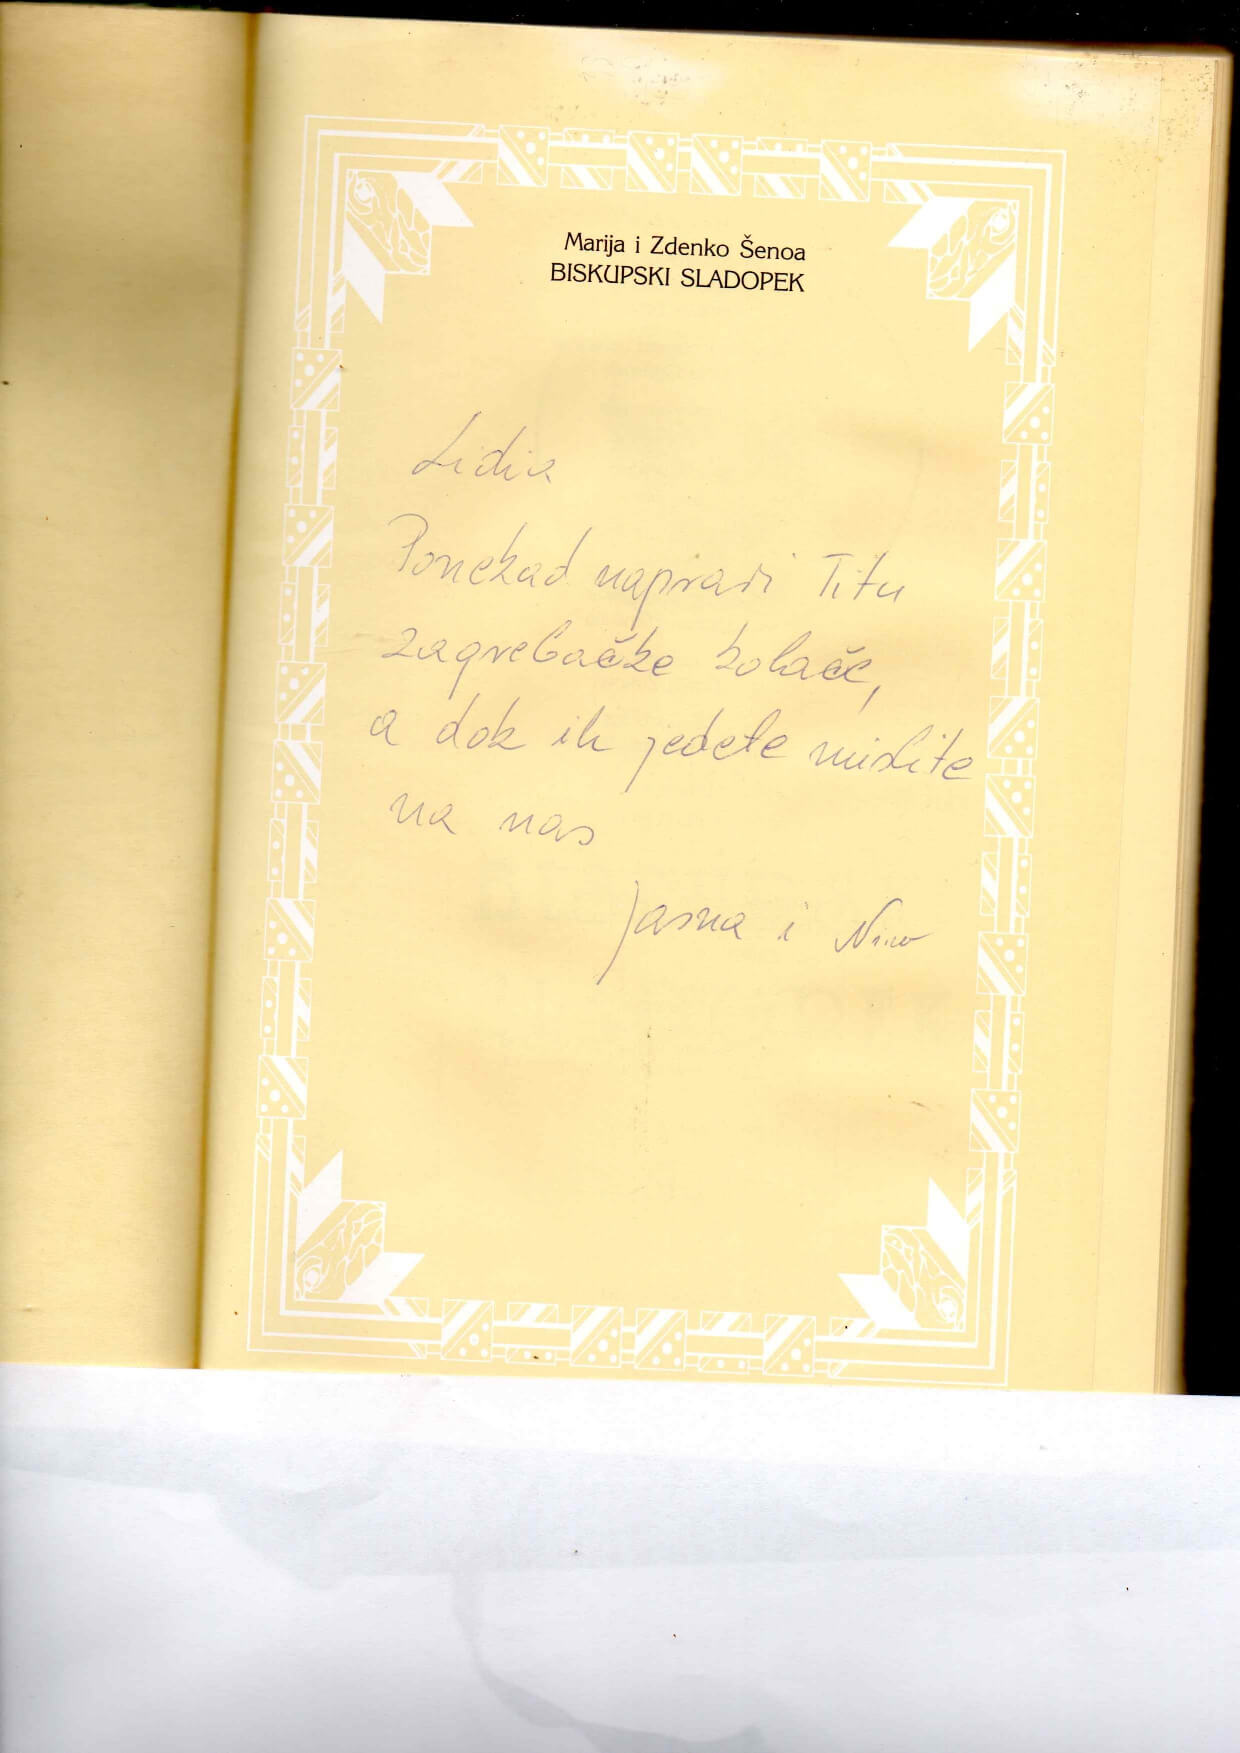 Marija i Zdenko Šenoa
BISKUPSKI SLADOPEK
Lidia
Ponekad napravi Titu
zagrebačke kolače,
a dok ih jedete mislite
na nas
Jasna i Nino